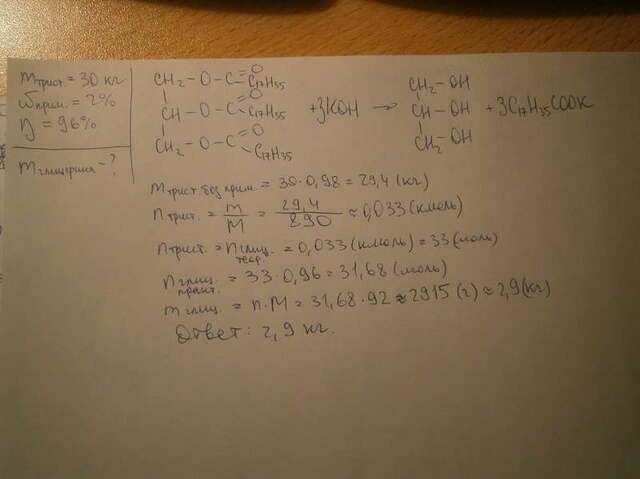 mтрист. = 30 кг
ωприм. = 2%
η = 96%
mглицерина - ?
CH₂ - O - C =O C₁₇H₃₅
CH - O - C =O C₁₇H₃₅ + 3KOH → CH₂ - OH CH - OH CH₂ - OH + 3C₁₇H₃₅COOK
CH₂ - O - C =O C₁₇H₃₅
mтрист без прим. = 30·0,98 = 29,4 (кг)
nтрист. = m/M = 29,4/890 ≈ 0,033 (кмоль)
nтрист. = nглиц. теор. = 0,033 (кмоль) = 33 (моль)
nглиц. практ. = 33·0,96 = 31,68 (моль)
mглиц. = n·M = 31,68·92 ≈ 2915 (г) ≈ 2,9 (кг)
Ответ: 2,9 кг.